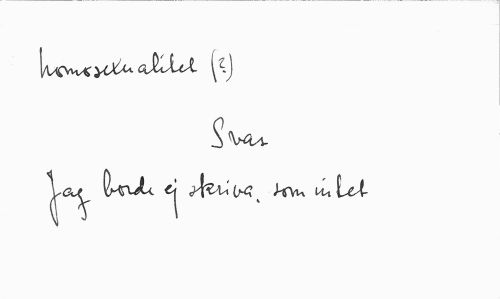 homosexualitet (?)
Svar
Jag borde ej skriva, som intet